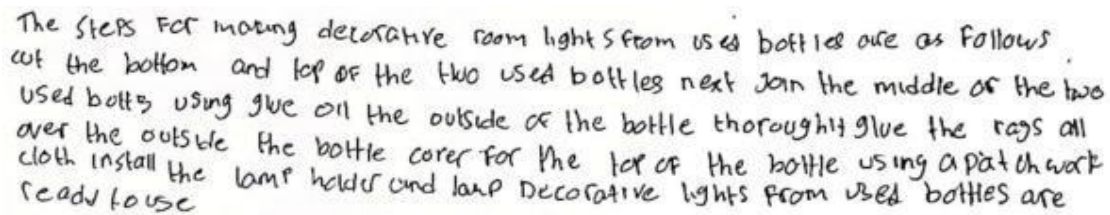 The steps For making decorative room lights from used bottles are as Follows.
cut the bottom and top of the two used bottles next Join the middle of the two
used botts using glue on the outside of the bottle thoroughly glue the rags all
over the outside the bottle cover for the top of the bottle using a patchwork
cloth install the lamp holder and lamp Decorative lights from used bottles are
ready to use